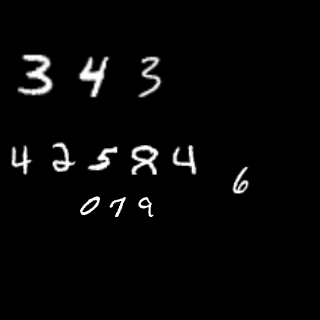 343
42584
6
079